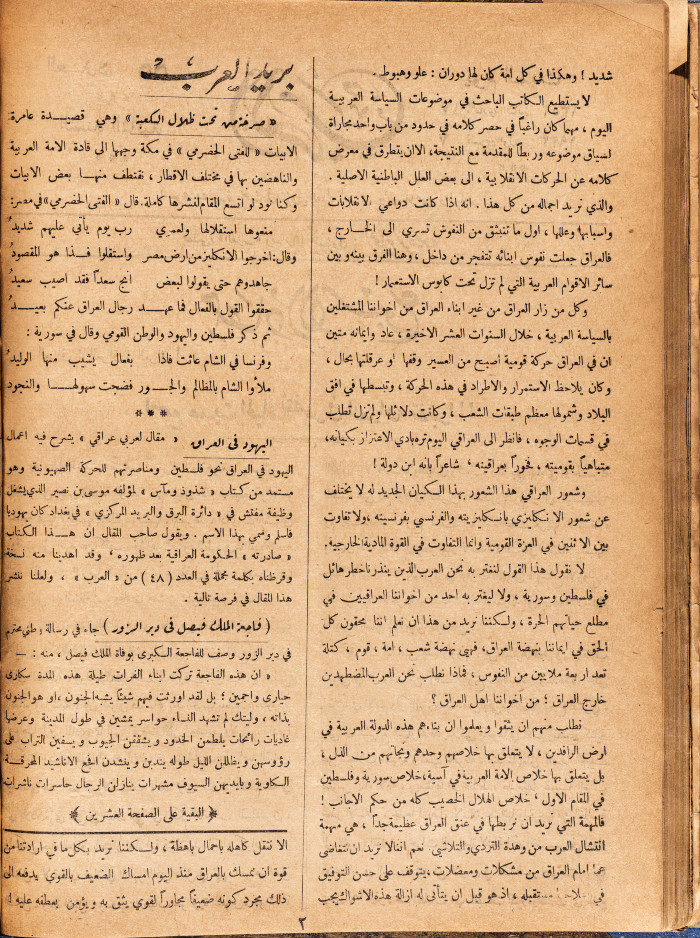 شديد ! وهكذا في كل امة كان لها دوران : علو وهبوط .
لا يستطيع الكاتب الباحث في موضوعات السياسة العربية
اليوم ، مهما كان راغباً في حصر كلامه في حدود من باب واحد مجاراة
لسياق موضوعه وربطاً للمقدمة مع النتيجة، الا ان يتطرق في معرض
كلامه عن الحركات الانقلابية ، الى بعض العلل الباطنية الاصلية .
والذي نريد اجماله من كل هذا . انه اذا كانت دواعي الانقلابات
واسبابها وعللها ، اول ما تنبثق من النفوس تسري الى الخارج ،
فالعراق جعلت نفوس ابنائه تتفجر من داخل ، وهنا الفرق بينه وبين
سائر الاقوام العربية التي لم تزل تحت كابوس الاستعمار !
وكل من زار العراق من غير ابناء العراق من اخواننا المشتغلين
بالسياسة العربية ، خلال السنوات العشر الاخيرة ، عاد وايمانه متين
ان في العراق حركة قومية اصبح من العسير وقفها او عرقلتها بحال ،
وكان يلاحظ الاستمرار والاطراد في هذه الحركة ، وتبسطها في افق
البلاد وشمولها معظم طبقات الشعب ، وكانت دلائلها ولم تزل تطلب
في قسمات الوجوه ، فانظر الى العراقي اليوم تره بادي الاعتزاز بكيانه،
متباهياً بقوميته ، فخوراً بعراقيته ، شاعراً بانه ابن دولة !
وشعور العراقي هذا الشعور بهذا الكيان الجديد له لا يختلف
عن شعور الانكليزي بانكليزيته والفرنسي بفرنسيته ، ولا تفاوت
بين الاثنين في العزة القومية وانما التفاوت في القوة المادية الخارجية.
لا نقول هذا القول لنغتر به نحن العرب الذين ينذرنا خطر هائل
في فلسطين وسورية ، ولا ليغتر به احد من اخواننا العراقيين في
مطلع حياتهم الحرة ، ولكننا نريد من هذا ان نعلم اننا محقون كل
الحق في ايماننا بنهضة العراق، فهي نهضة شعب ، امة ، قوم ، كتلة
تعد اربعة ملايين من النفوس ، فماذا نطلب نحن العرب المضطهدين
خارج العراق ؛ من اخواننا اهل العراق ؟
نطلب منهم ان يثقوا ويعلموا ان بناءهم هذه الدولة العربية في
ارض الرافدين ، لا يتعلق بها خلاصهم وحدهم ونجاتهم من الذل ،
بل يتعلق بها خلاص الامة العربية في آسية، خلاص سورية وفلسطين
في المقام الاول ، خلاص الهلال الخصيب كله من حكم الاجانب !
فالمهمة التي نريد ان نربطها في عنق العراق عظيمة جداً ، هي مهمة
انتشال العرب من وهدة التردي والتلاشي نعم اننا لا نريد ان نتغاضى
عما امام العراق من مشكلات ومعضلات ، يتوقف على حسن التوفيق
في مستقبله ، اذ هو قبل ان يتأتى له ازالة هذه الاشواك يجب
بريد العرب
« صرخة من تحت ظلال الكعبة » وهي قصيدة عامرة:
الابيات « للفتى الحضرمي » في مكة وجهها الى قادة الامة العربية
والناهضين بها في مختلف الاقطار ، نقتطف منها بعض الابيات
وكنا نود لو اتسع المقام لنشرها كاملة. قال « الفتى الحضرمي » في مصر:
منعوها استقلالها ولعمري رب يوم يأتي عليهم شديدُ
وقال: اخرجوا الانكليز من ارض مصر واستقلوا فذا هو المقصودُ
جاهدوهم حتى يقولوا لبعض انج سعداً فقد اصيب سعيدُ
حققوا القول بالفعال فما عهد رجال العراق عنكم بعيدُ
ثم ذكر فلسطين واليهود والوطن القومي وقال في سورية :
وفرنسا في الشام عاثت فاذا بفعال يشيب منها الوليدُ
ملأوا الشام بالمظالم والجور فضجت سهولها والنجود
***
اليهود في العراق « مقال لعربي عراقي » يشرح فيه اعمال
اليهود في العراق نحو فلسطين ومناصرتهم للحركة الصهيونية وهو
مستمد من كتاب « شذوذ ومآس » لمؤلفه موسى بن نصير الذي يشغل
وظيفة مفتش في « دائرة البرق والبريد المركزي » في بغداد كان يهودياً
فاسلم وسمي بهذا الاسم . ويقول صاحب المقال ان هذا الكتاب
« صادرته » الحكومة العراقية بعد ظهوره ، وقد اهدينا منه نسخة
وقرظناه بكلمة مجملة في العدد (٤٨) من « العرب » ، ولعلنا ننشر
هذا المقال في فرصة تالية .
( فاجعة الملك فيصل في دير الزور ) جاء في رسالة ، وطني محترم
في دير الزور وصف للفاجعة الكبرى بوفاة الملك فيصل ، منه : —
« ان هذه الفاجعة تركت ابناء الفرات طيلة هذه المدة سكارى
حيارى واجمين ؛ بل لقد اورثت فيهم شيئاً يشبه الجنون ، او هو الجنون
بذاته ، وليتك لم تشهد النساء حواسر يمشين في طول المدينة وعرضها
غاديات رائحات يلطمن الخدود ويشققن الجيوب ويسفين التراب على
رؤوسهن ويظللن الليل طوله يندبن وينشدن افجع الاناشيد المحرقة
الكاوية وبايديهن السيوف مشهرات ينازلن الرجال حاسرات ناشرات
﴿ البقية على الصفحة العشرين ﴾
الا تنقل كاهله باحمال باهظة ، ولكننا نريد بكل ما في ارادتنا من
قوة ان نمسك بالعراق منذ اليوم امساك الضعيف بالقوي يدفعه الى
ذلك مجرد كونه ضعيفاً مجاوراً لقوي يثق به ويؤمن بعطفه عليه !
٣